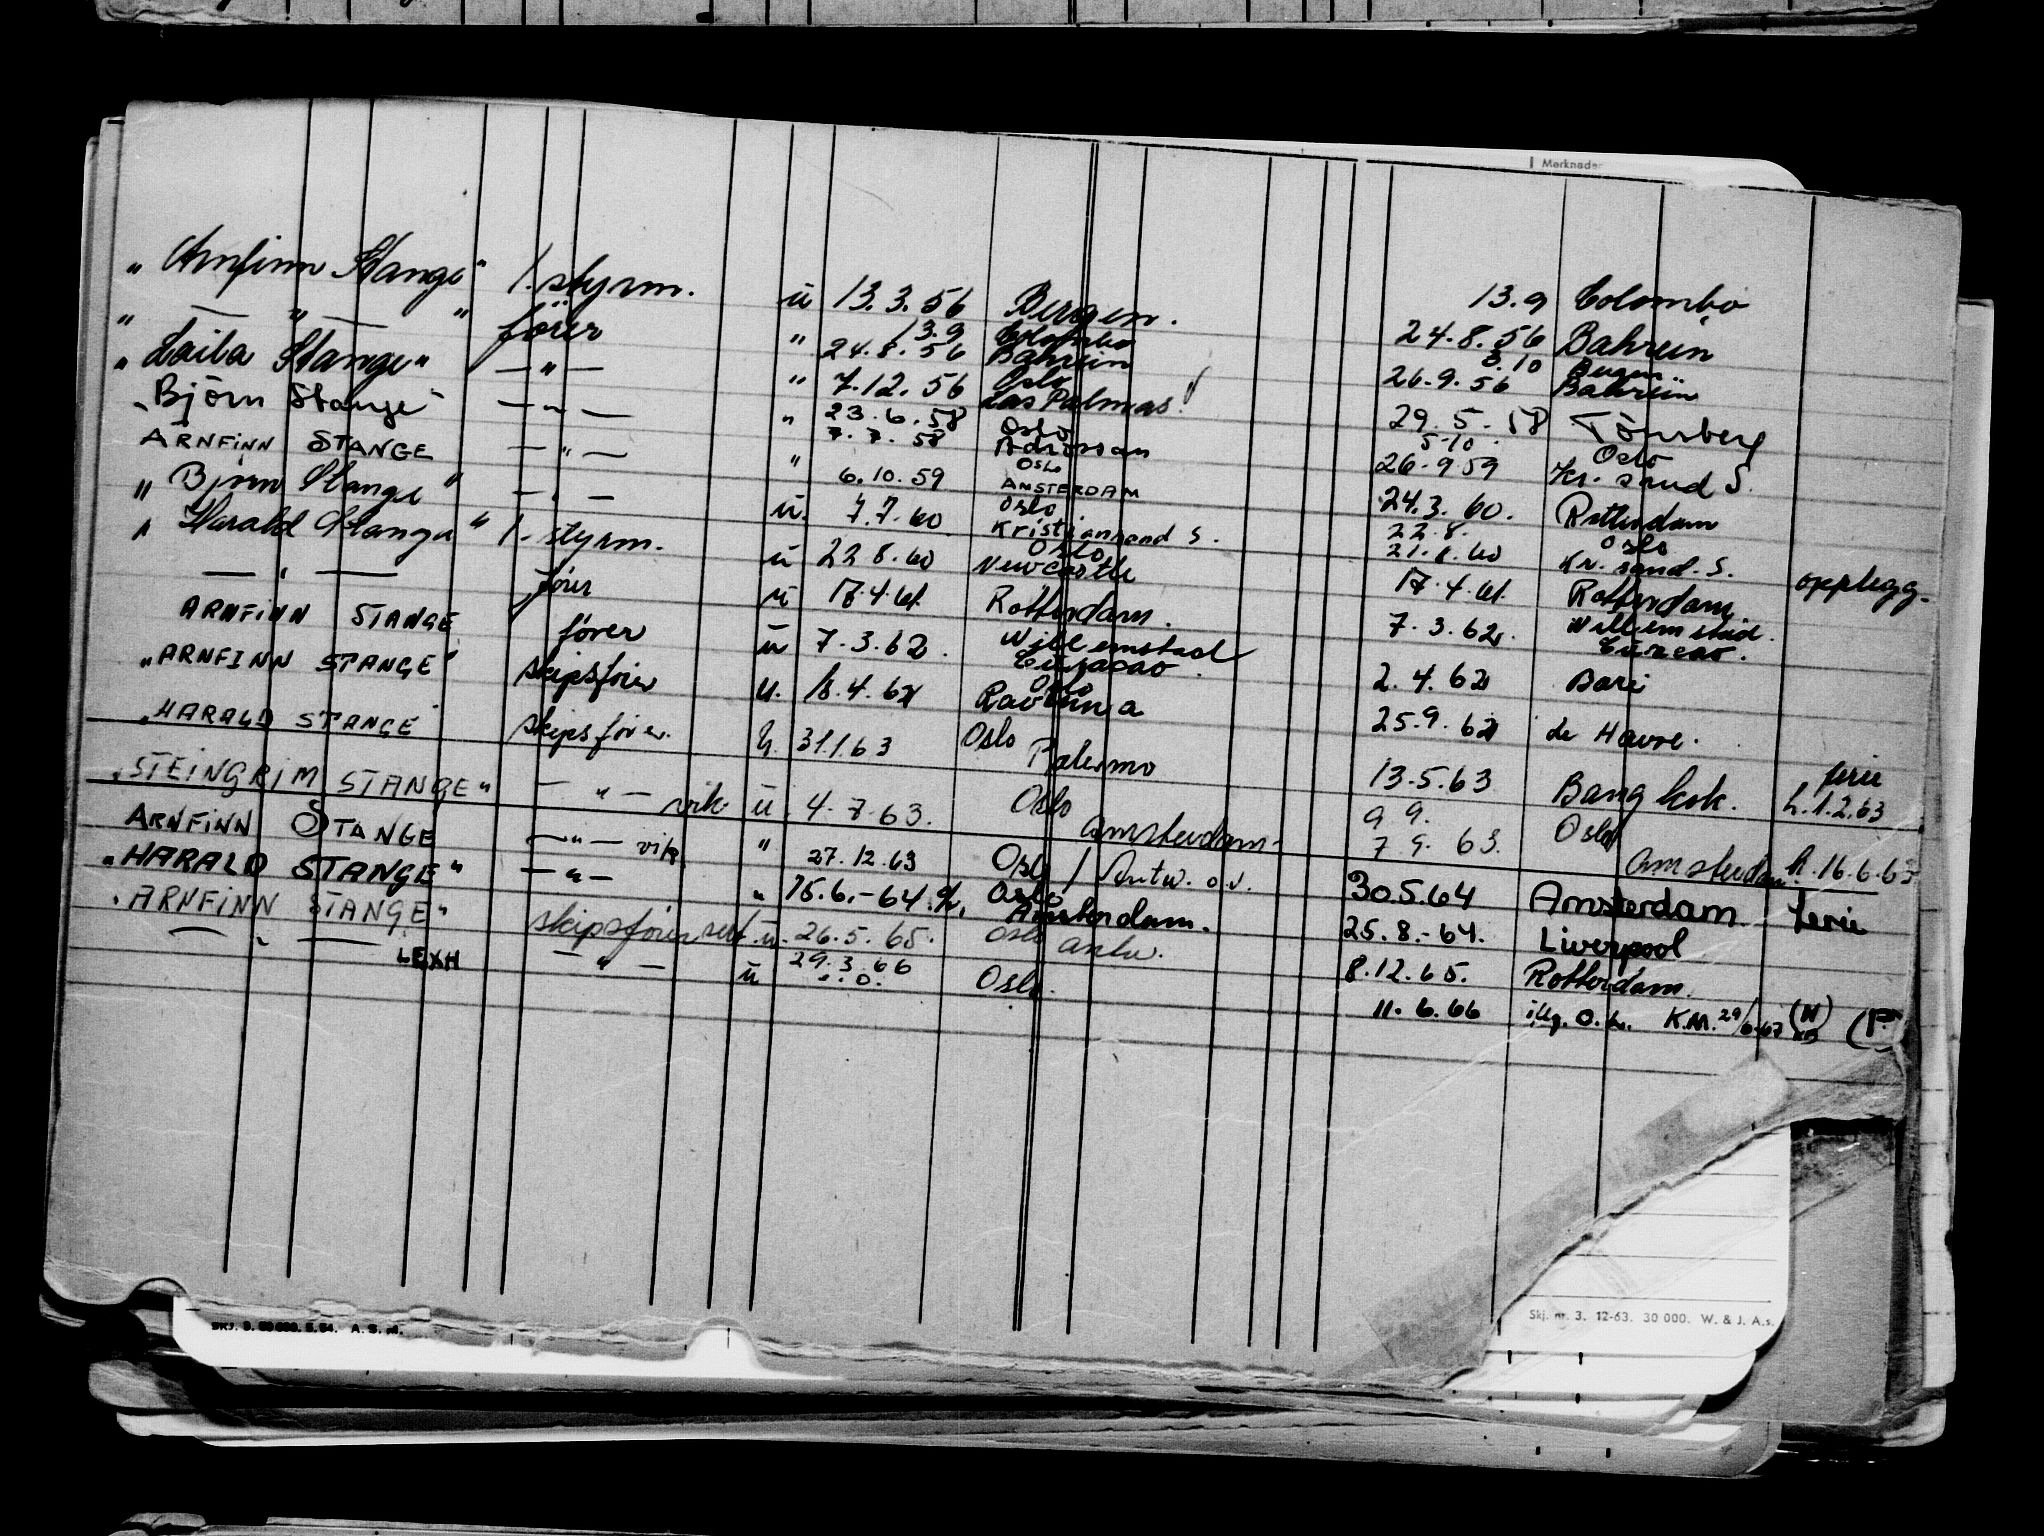 Merknader
"Arnfinn Stange" 1. styrm. u 13.3.56 Bergen. 13.9 Colombo
" — " — " fører " 13.9 24.8.56 Colombo Bahrein 24.8.56 Bahrein
"Laila Stange" — " — " 7.12.56 Oslo Las Palmas. 3.10 26.9.56 Bergen Bahrein
"Björn Stange" — " — " 23.6.58 7.7.58 Oslo Adrossan 29.5.58 Tönsberg
ARNFINN STANGE — " — " 6.10.59 Oslo AMSTERDAM 5-10 26-9 59 Oslo Kr. sand S.
"Björn Stange" — " — u. 7.7.60 Oslo Kristiansand S. 24.3.60. Rotterdam
"Harald Stange" 1. styrm. u 22 8.60 Oslo Newcastle 22.8. 21.8.60 Oslo Kr. sand. S. opplegg.
— " — fører u 17.4.61. Rotterdam. 17.4.61. Rotterdam
ARNFINN STANGE fører u 7.3.62. Willemstad Curacao. 7.3.62. Willemstad. Curacao.
"ARNFINN STANGE" skipsfører u. 18.4.62 Oslo Ravenna 2.4.62 Bari
"HARALD STANGE" skipsfører. u. 31.1.63 Oslo Palermo 25.9.62 le Havre.
"STEINGRIM STANGE" — " — vik u. 4.7.63. Oslo Amsterdam. 13.5.63 Bangkok. ferie h.1.2.63
ARNFINN STANGE — " — vik " 27.12.63 Oslo / Antw. o.v. 9 9. 7 9. 63. Oslo Amsterdam. h.16.6.63
"HARALD STANGE" — " — " 15.6.-64. Oslo Amsterdam. 30.5.64 Amsterdam ferie
"ARNFINN STANGE" skipsfører u. 26.5.65. Oslo Antw. 25.8.-64. Liverpool
— " — LEXH — " — u 29.3.66 Oslo. 8.12.65. Rotterdam.
11.6.66 K.M. 29/6-67 (P.
SKJ. 3. A. S. M.
Skj. nr. 3. 12-63. 30 000. W. & J. A.s.